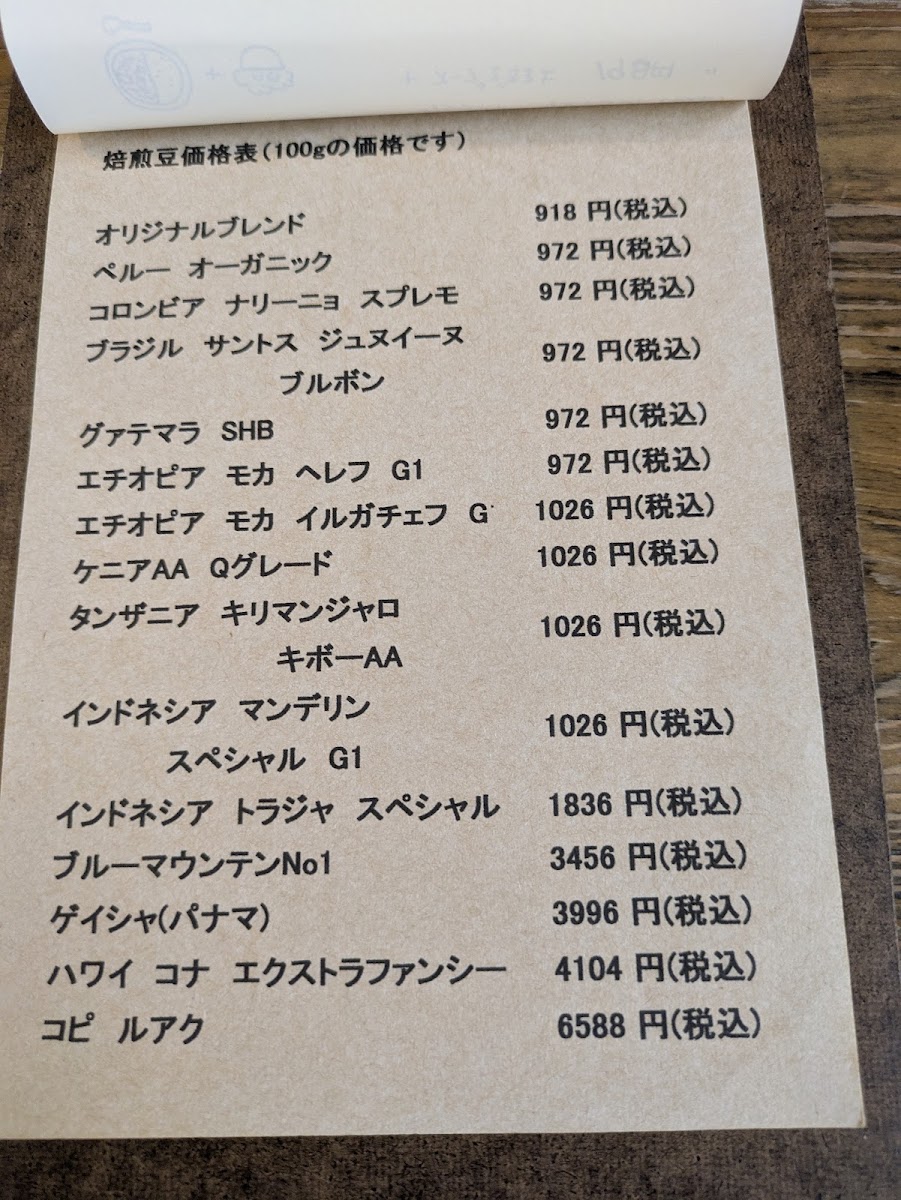 焙煎豆価格表(100gの価格です)
オリジナルブレンド 918 円(税込)
ペルー オーガニック 972 円(税込)
コロンビア ナリーニョ スプレモ 972 円(税込)
ブラジル サントス ジュヌイーヌ 972 円(税込)
ブルボン
グァテマラ SHB 972 円(税込)
エチオピア モカ ヘレフ G1 972 円(税込)
エチオピア モカ イルガチェフ G 1026 円(税込)
ケニアAA Qグレード 1026 円(税込)
タンザニア キリマンジャロ 1026 円(税込)
キボーAA
インドネシア マンデリン 1026 円(税込)
スペシャル G1
インドネシア トラジャ スペシャル 1836 円(税込)
ブルーマウンテンNo1 3456 円(税込)
ゲイシャ(パナマ) 3996 円(税込)
ハワイ コナ エクストラファンシー 4104 円(税込)
コピ ルアク 6588 円(税込)